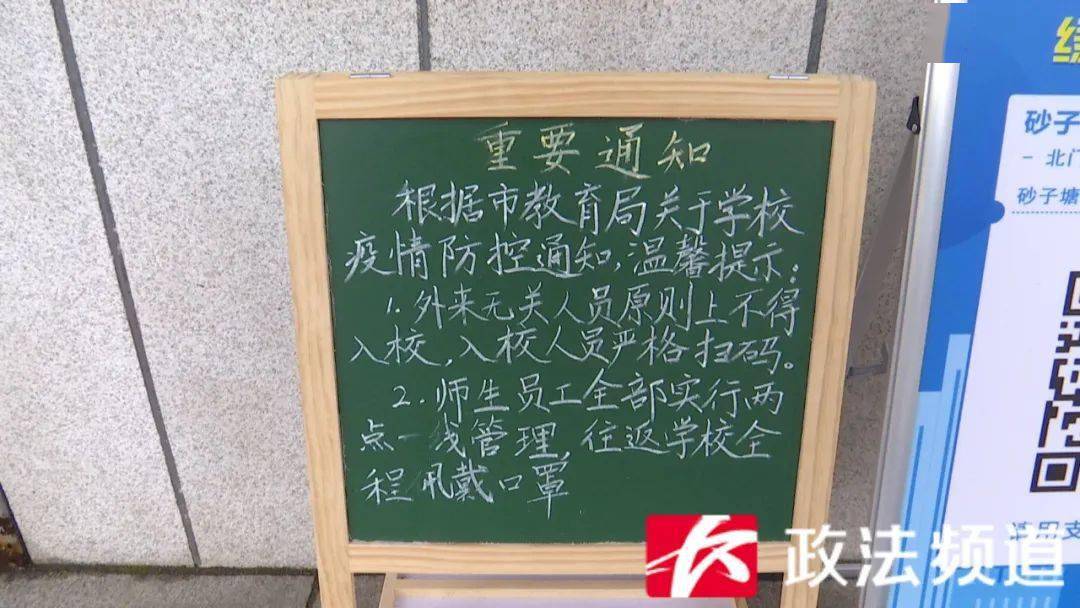 重要通知
根据市教育局关于学校
疫情防控通知，温馨提示：
1.外来无关人员原则上不得
入校，入校人员严格扫码。
2.师生员工全部实行两
点一线管理，往返学校全
程佩戴口罩
砂子
- 北门
砂子塘
政法频道